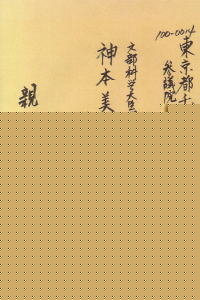 100-0014
東京都千
参議院
文部科学大臣
神本美
親